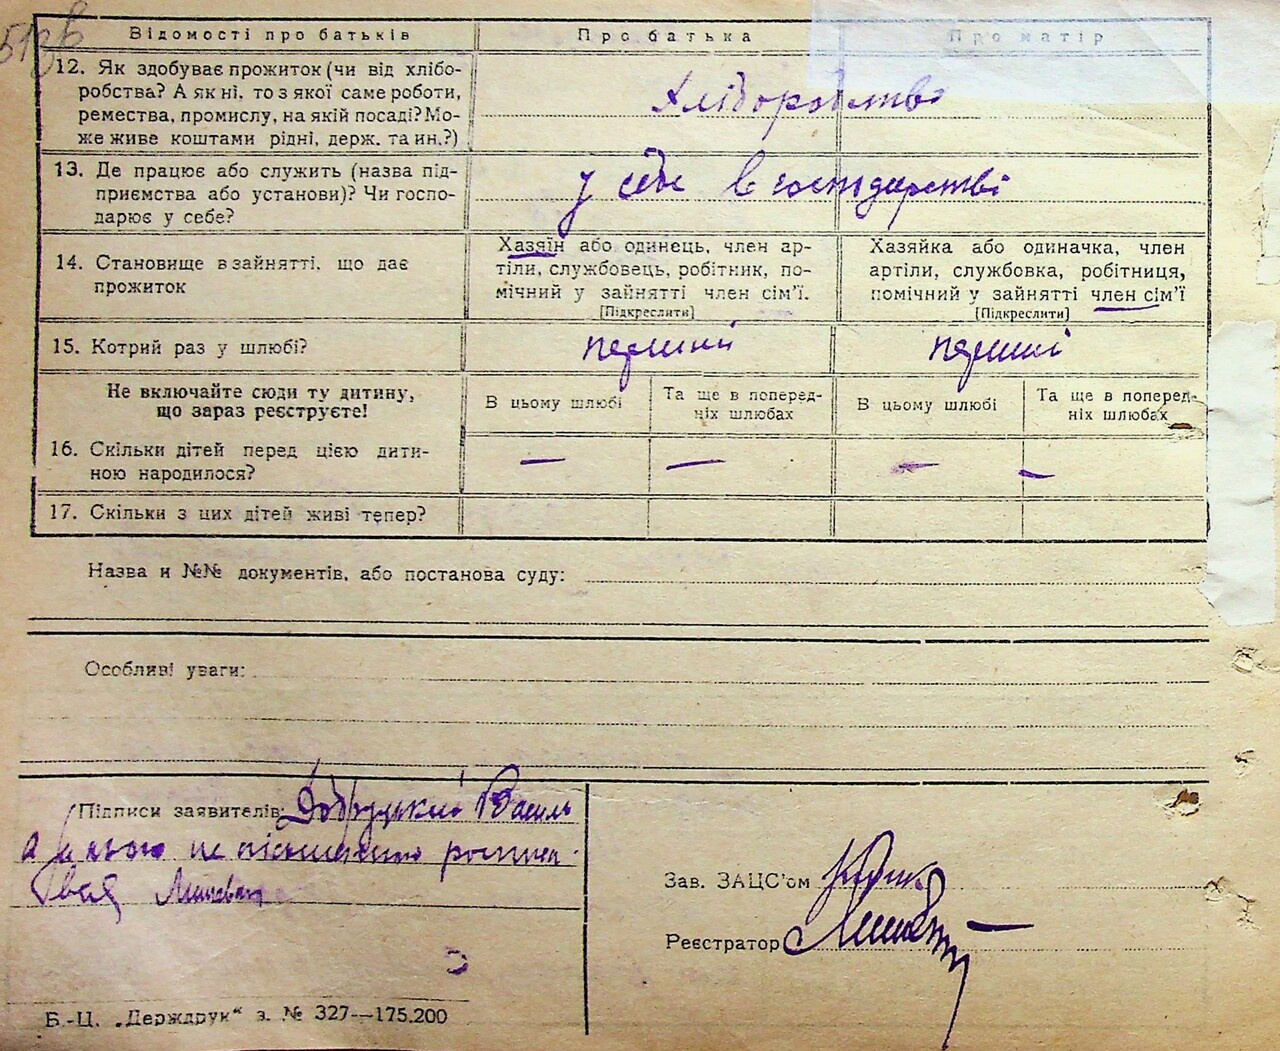 513в
Відомості про батьків Про батька Про матір
12. Як здобуває прожиток (чи від хлібо-
робства? А як ні, то з якої саме роботи,
ремества, промислу, на якій посаді? Мо-
же живе коштами рідні, держ. та ин.?)
Хліборобство
13. Де працює або служить (назва під-
приємства або установи)? Чи госпо-
дарює у себе?
у себе в господарстві
14. Становище в зайнятті, що дає
прожиток
Хазяїн або одинець, член ар-
тіли, службовець, робітник, по-
мічний у зайнятті член сім'ї.
[Підкреслити]
Хазяйка або одиначка, член
артіли, службовка, робітниця,
помічний у зайнятті член сім'ї
[Підкреслити]
15. Котрий раз у шлюбі? перший перший
Не включайте сюди ту дитину,
що зараз реєструєте!
В цьому шлюбі
Та ще в поперед-
ніх шлюбах
В цьому шлюбі
Та ще в поперед-
ніх шлюбах
16. Скільки дітей перед цією дити-
ною народилося?
— — — —
17. Скільки з цих дітей живі тепер?
Назва и №№ документів, або постанова суду:
Особливі уваги:
Підписи заявителів: Добруцький Василь
а за нього не письменного розписа
вся
Зав. ЗАЦС'ом
Реєстратор
Б.-Ц. „Держдрук“ з. № 327—175.200